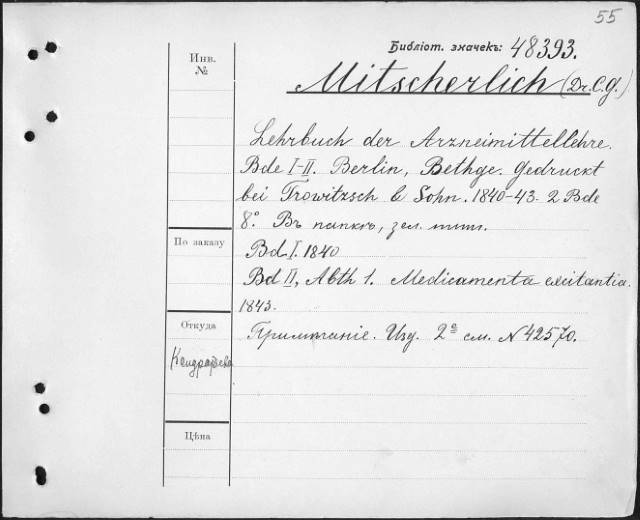 55
Библіот. значекъ: 48393.
Инв.
№
Mitscherlich (Dr. C. G.)
Lehrbuch der Arzneimittellehre.
Bde I-II. Berlin, Bethge. Gedruckt
bei Trowitzsch & Sohn. 1840-43. 2 Bde
8°. Въ папкѣ, зел. тит.
По заказу
Bd I. 1840
Bd II, Abth 1. Medicamenta excitantia.
1843.
Откуда
Примѣчаніе. Изд. 2е см. N 42570.
Цѣна